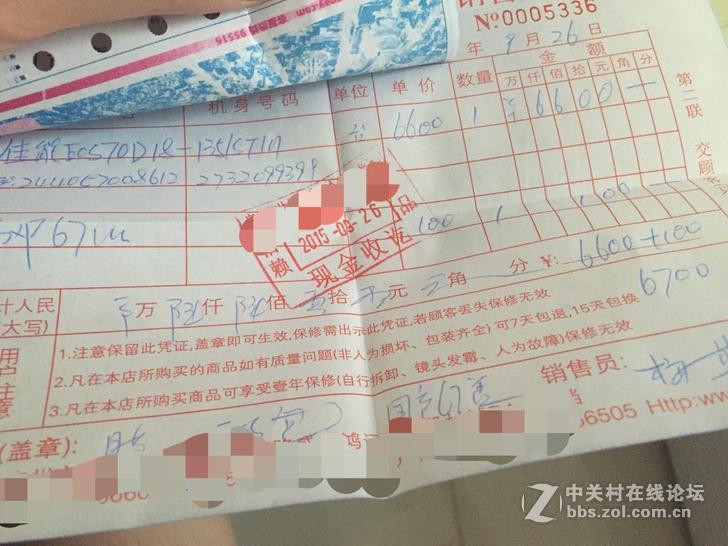 pay.com 95516
№0005336
年 9 月 26 日
机身号码 单位 单价 数量 金额
万 仟 佰 拾 元 角 分
佳能EOS70D18-135KSTM 台 6600 1 6600 —
244057008612 2732099399
67mm 100 1 100 —
2015-09-26
现金收讫
计人民
(大写) 万 陆仟 陆佰 拾 元 角 分 ¥: 6600+100
6700
用户注意
1.注意保留此凭证,盖章即可生效,保修需出示此凭证,若顾客丢失保修无效
2.凡在本店所购买的商品如有质量问题(非人为损坏、包装齐全)可7天包退,15天包换
3.凡在本店所购商品可享受壹年保修(自行拆卸、镜头发霉、人为故障)保修无效
(盖章): 销售员:
6505 Http:ww
第二联 交顾
中关村在线论坛
bbs.zol.com.cn